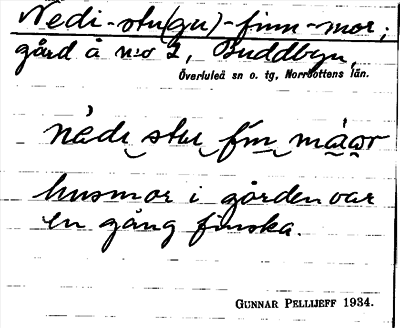 Nedi-stu(gu)-finn-mor,
gård å n:o 2, Buddbyn,
Överluleå sn o. tg, Norrbottens län.
husmor i gården var
en gång finska.
GUNNAR PELLIJEFF 1934.